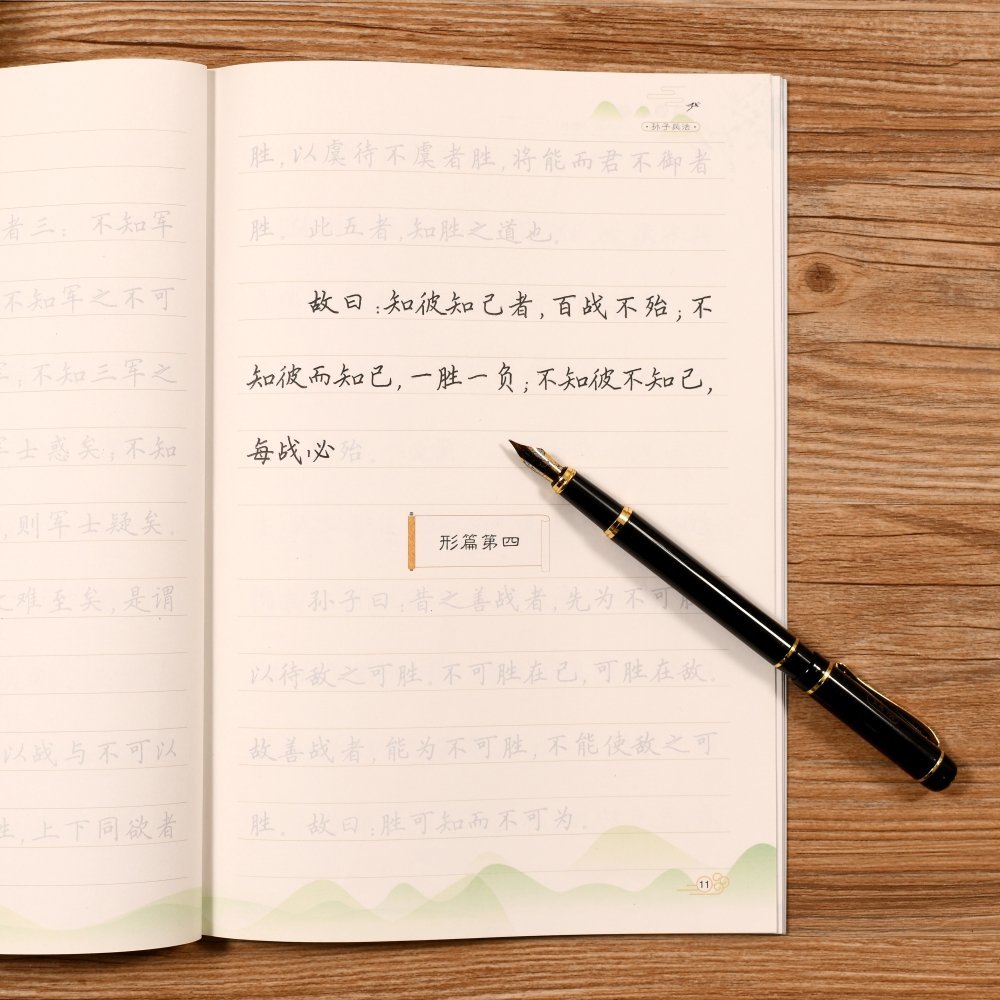 者三：不知军
不知军之不可
;不知三军之
士惑矣;不知
,则军士疑矣.
难至矣,是谓
以战与不可以
,上下同欲者
·孙子兵法·
胜,以虞待不虞者胜,将能而君不御者
胜. 此五者,知胜之道也.
故曰:知彼知己者,百战不殆;不
知彼而知己,一胜一负;不知彼不知己,
每战必殆.
形篇第四
孙子曰:昔之善战者,先为不可胜
以待敌之可胜.不可胜在己,可胜在敌.
故善战者,能为不可胜,不能使敌之可
胜. 故曰:胜可知而不可为.
11